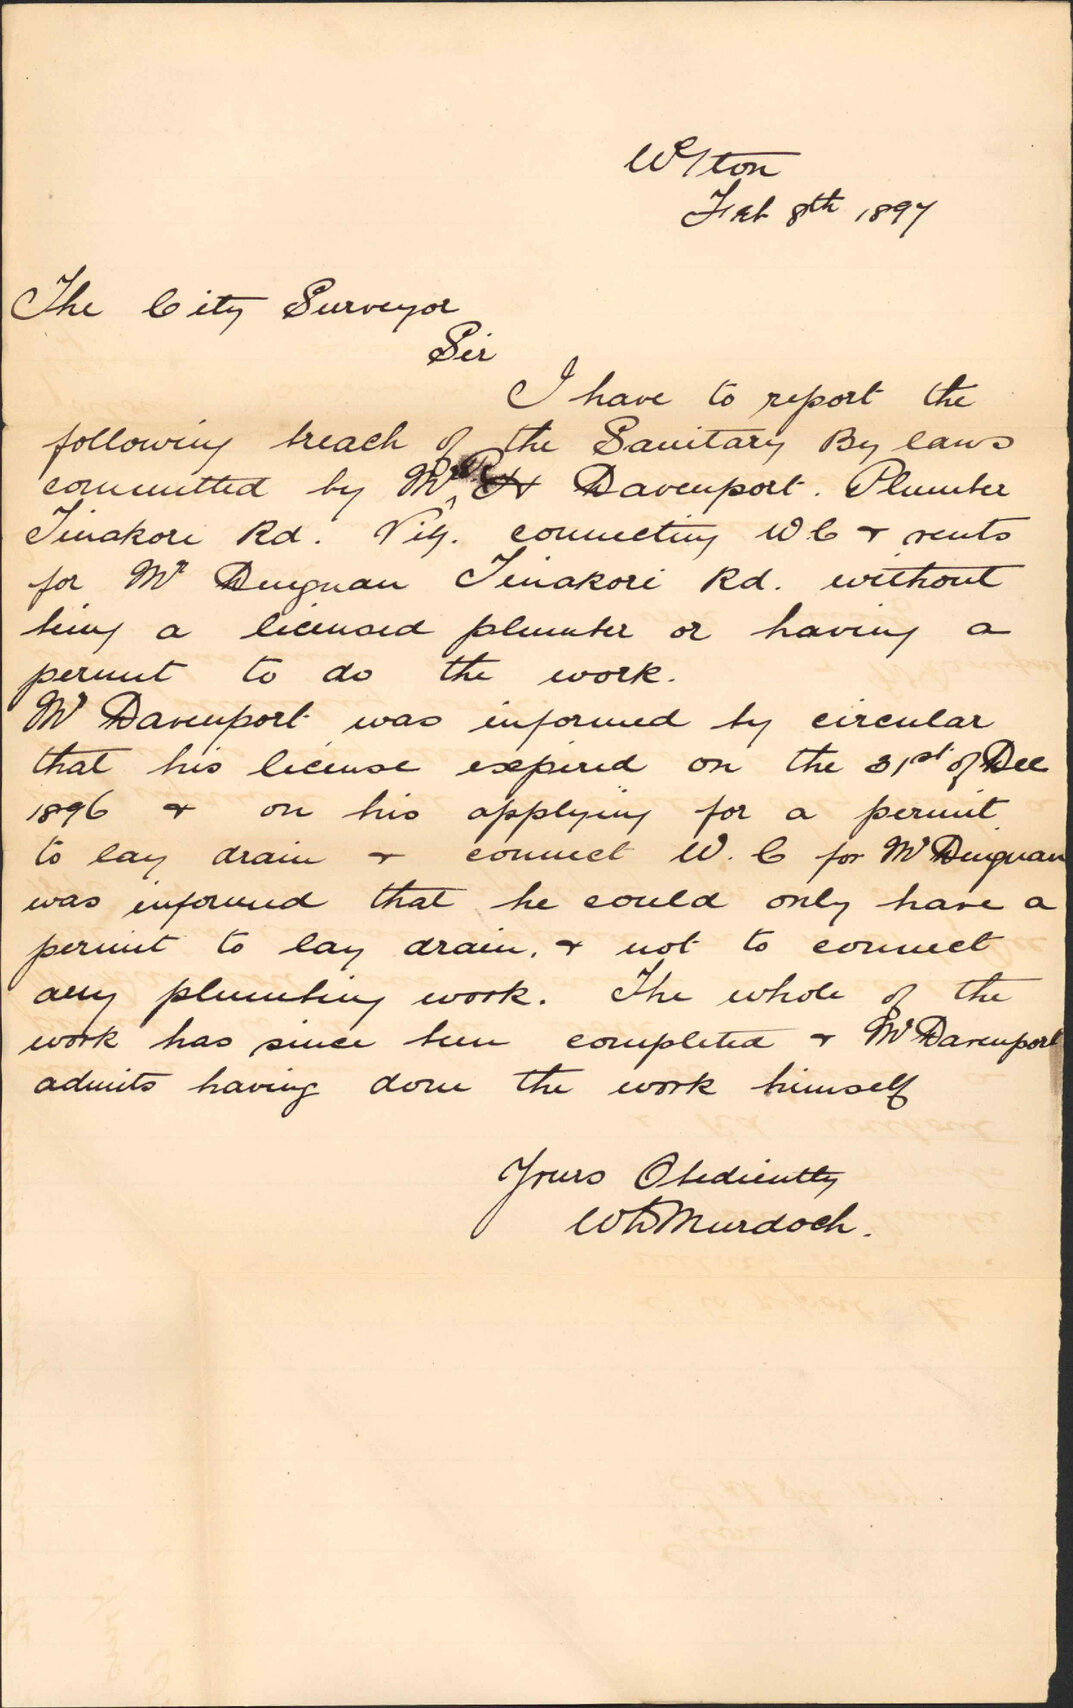 W<sup>e</sup>/ton
Feb 8th 1897
The City Surveyor
Sir
I have to report the
following breach of the Sanitary By laws
committed by Mr Davenport. Plumber
Tinakori Rd. Viz. connecting W.C & vents
for Mr Duignan Tinakori Rd. without
being a licensed plumber or having a
permit to do the work.
Mr Davenport was informed by circular
that his license expired on the 31st of Dec
1896 & on his applying for a permit
to lay drain & connect W.C for Mr Duignan
was informed that he could only have a
permit to lay drain. & not to connect
any plumbing work. The whole of the
work has since been completed & Mr Davenport
admits having done the work himself
Yours Obediently
Murdoch.